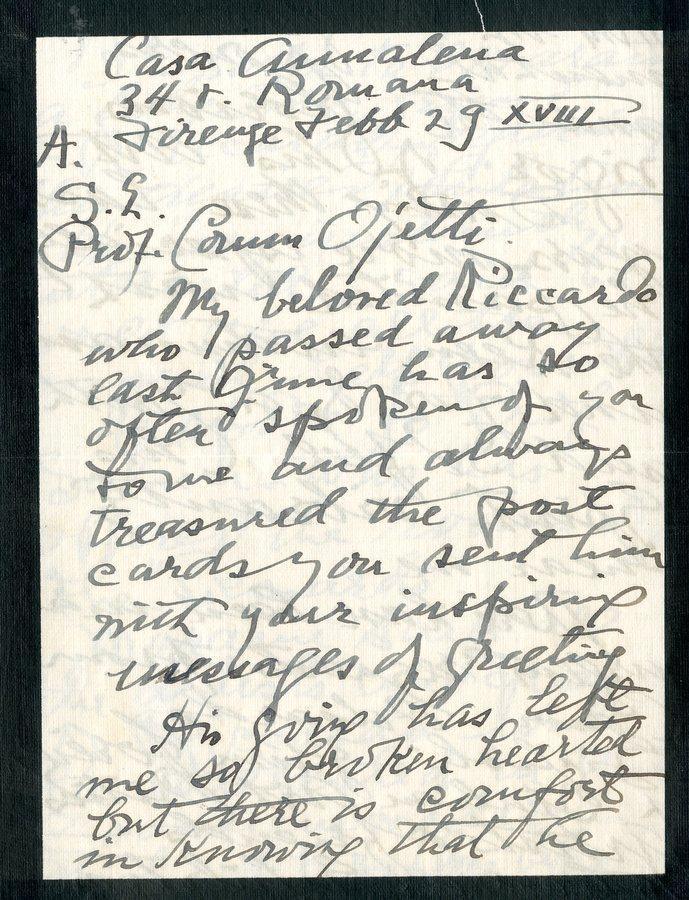 Casa Annalena
34 v. Romana
Firenze Febb 29 XVIII
A.
S. E.
Prof. Comm Ojetti.
My beloved Riccardo
who passed away
last June has so
often spoken of you
to me and always
treasured the post
cards you sent him
with your inspiring
messages of greeting
His going has left
me so broken hearted
but there is comfort
in knowing that he